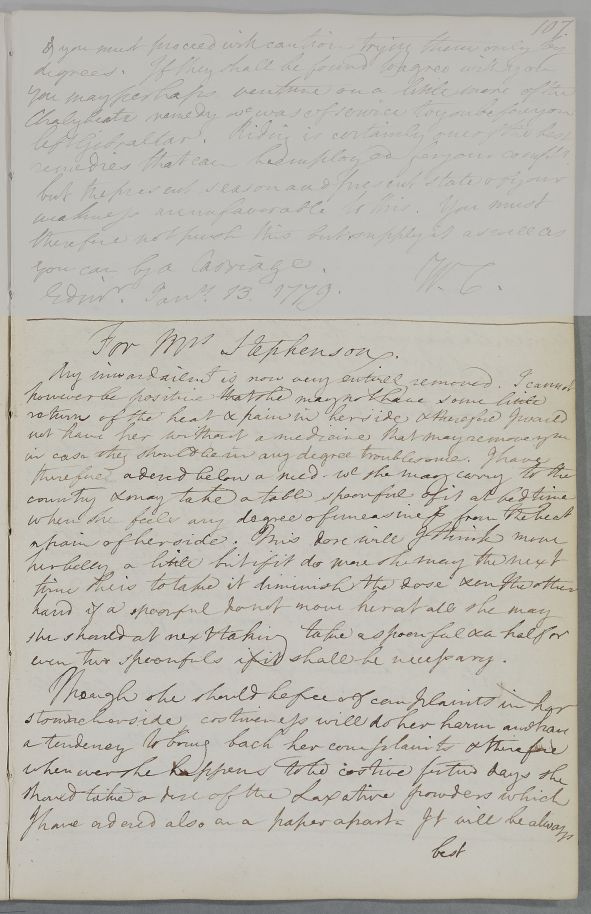 107
& you must proceed with caution trying them only by
degrees. If they shall be found to agree with you
you may perhaps venture on a little more of the
Chalybeate remedy wc was of service to you before you
left Gibraltar. Riding is certainly one of the best
remedies that can be employed for your compl.t
but the present season and present state of your
weakness are unfavorable to this. You must
therefore not push this but supply it as well as
you can by a Carriage. W. C.
Edinr. Jany. 13. 1779.
For Mrs Stephenson.
Any inward ailent is now very entirely removed. I cannot
however be positive that she may not have some little
return of the heat & pain in her side & therefore I would
not have her without a medicine that may remove
in case they should be in any degree troublesome. I have
therefore adered below a med. wc she may carry to the
country & may take a table spoonful of it at bed time
when she feels any degree of uneasiness from the heat
a pain of her side. This dose will I think move
her belly a little but if it do more she may the next
time she is to take it diminish the dose & on the other
hand if a spoonful do not move her at all she may
she should at next taking take a spoonful & a half or
even two spoonfuls if it shall be necessary.
Though she should be free of complaints in her
stomach or side, costiveness will do her harm and have
a tendency to bring back her complaints & therefore
whenever she happens to be costive for two days she
should take a dose of the Laxative powders which
I have ordered also on a paper apart. It will be always
best